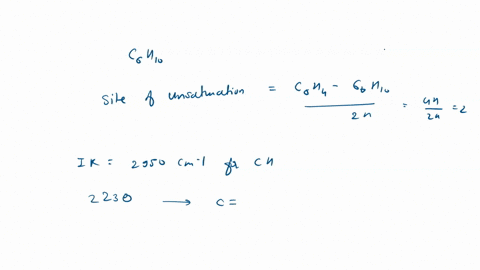 C6H10
Site of unsaturation = C6H4 - C6H10 / 2H = 4H / 2H = 2
IR = 2950 cm-1 for CH
2230 → C=